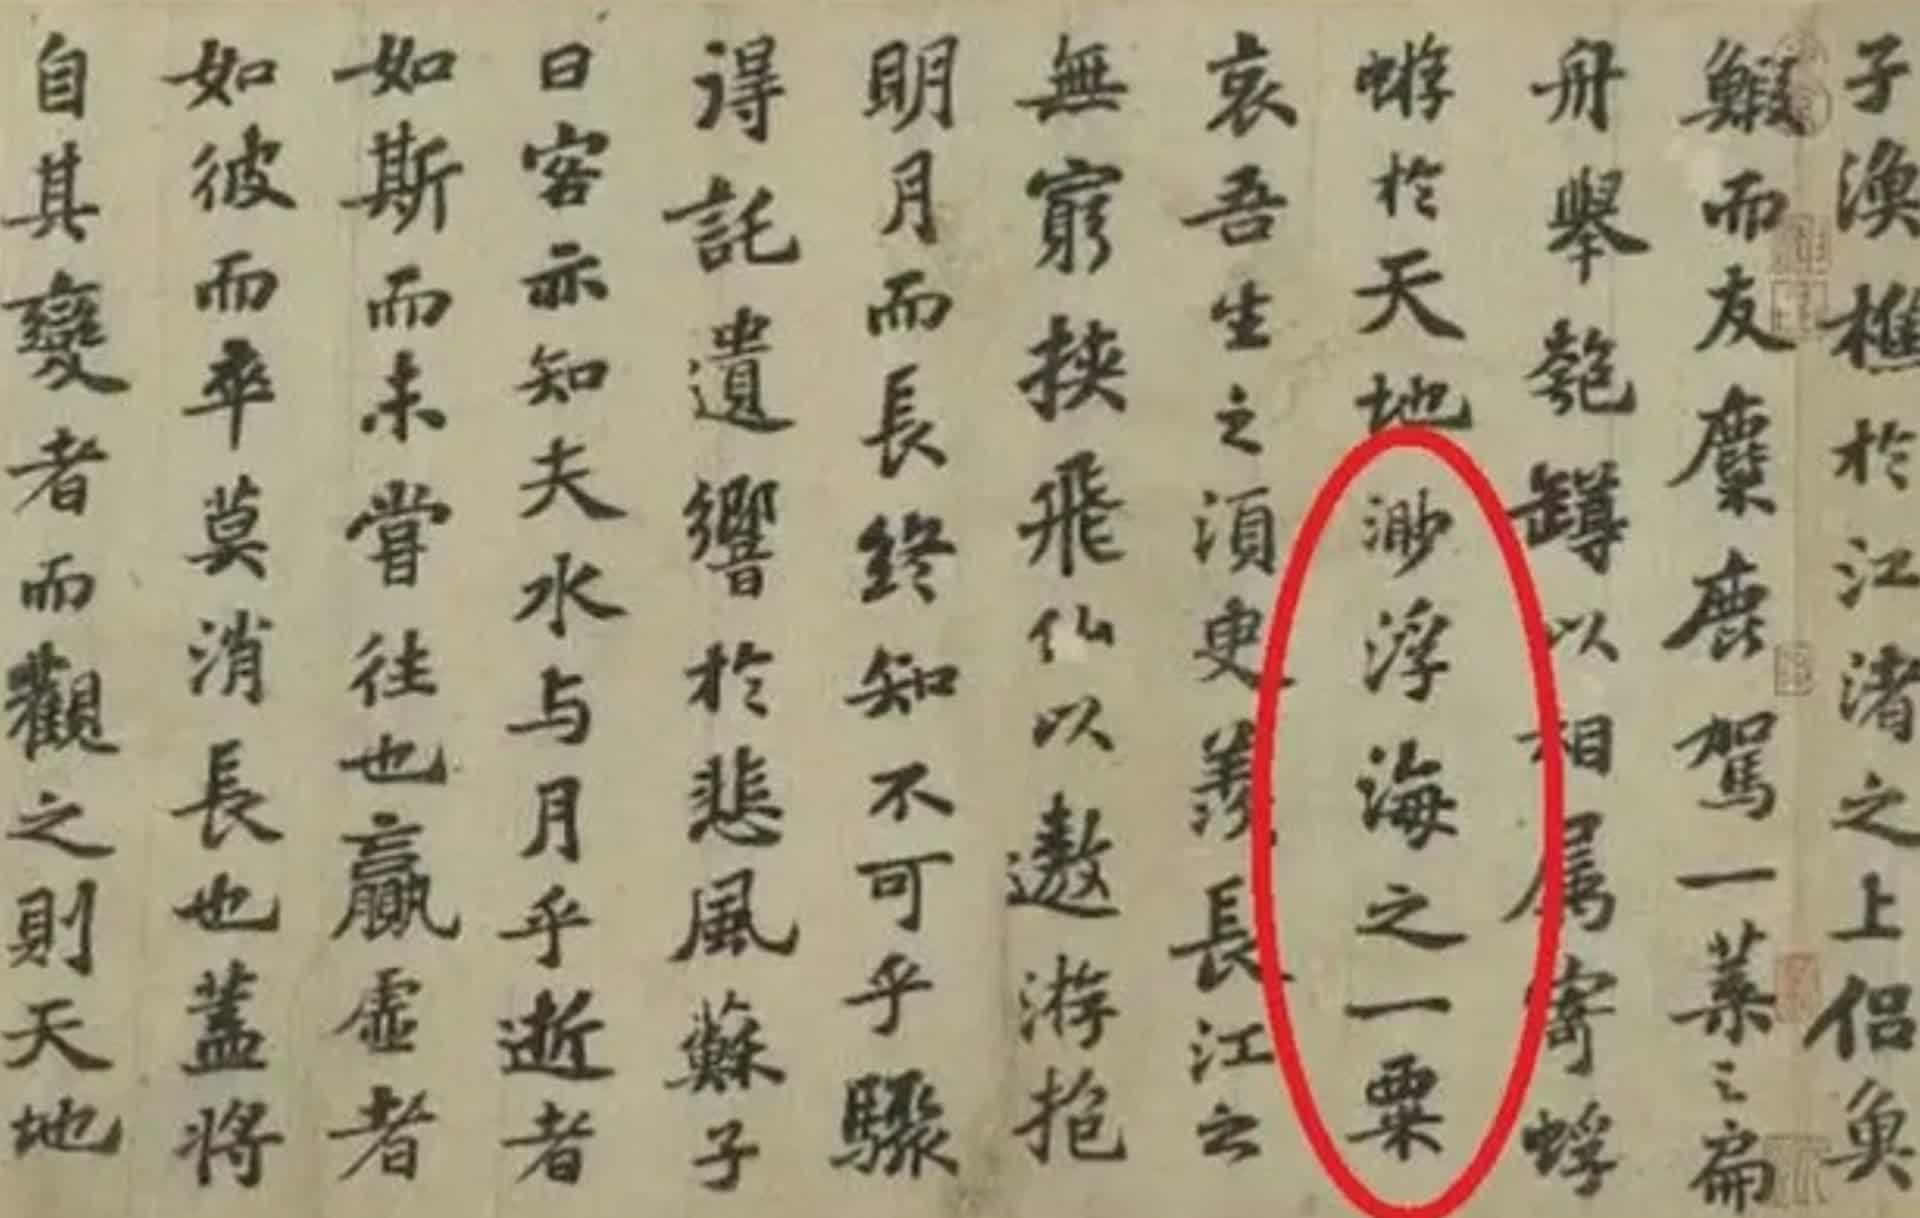 子渔樵於江渚之上侣魚
鰕而友麋鹿駕一葉之扁
舟舉匏罇以相属寄蜉
蝣於天地渺浮海之一粟
哀吾生之須臾羨長江之
無窮挾飛仙以遨游抱
明月而長終知不可乎驟
得託遺響於悲風蘇子
曰客亦知夫水与月乎逝者
如斯而未嘗往也贏虛者
如彼而卒莫消長也蓋將
自其變者而觀之則天地